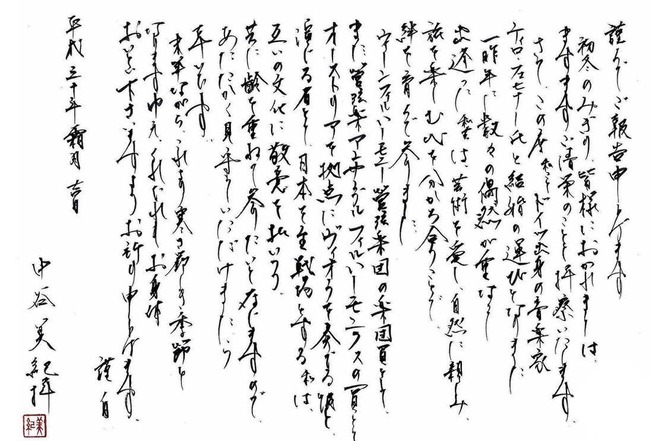 謹んでご報告申し上げます
初冬のみぎり、皆様におかれましては、
ますますご清栄のことと拝察いたします。
さて、この度 私こと ドイツ出身の音楽家
ティロ・フェヒナー氏と結婚の運びとなりました。
一昨年に数々の偶然が重なり
出逢った私達は、芸術を愛し、自然に親しみ、
旅を楽しむ心を分かち合うことで
絆を育んで参りました。
ウィーンフィルハーモニー管弦楽団の楽団員として、
また管弦楽アンサンブル フィルハーモニクスの一員として
オーストリアを拠点にヴィオラを奏でる彼と、
演じる者として、日本を主戦場とする私は
互いの文化に敬意を払いつつ
共に齢を重ねて参りたいと存じますので
あたたかく見守っていただけましたら
幸いです。
末筆ながら、これより寒さ厳しき季節と
なりますゆえ、くれぐれもお身体
おいといくださいますようお祈り申し上げます。
謹白
平成三十年 霜月 吉日
中谷美紀拝
美紀